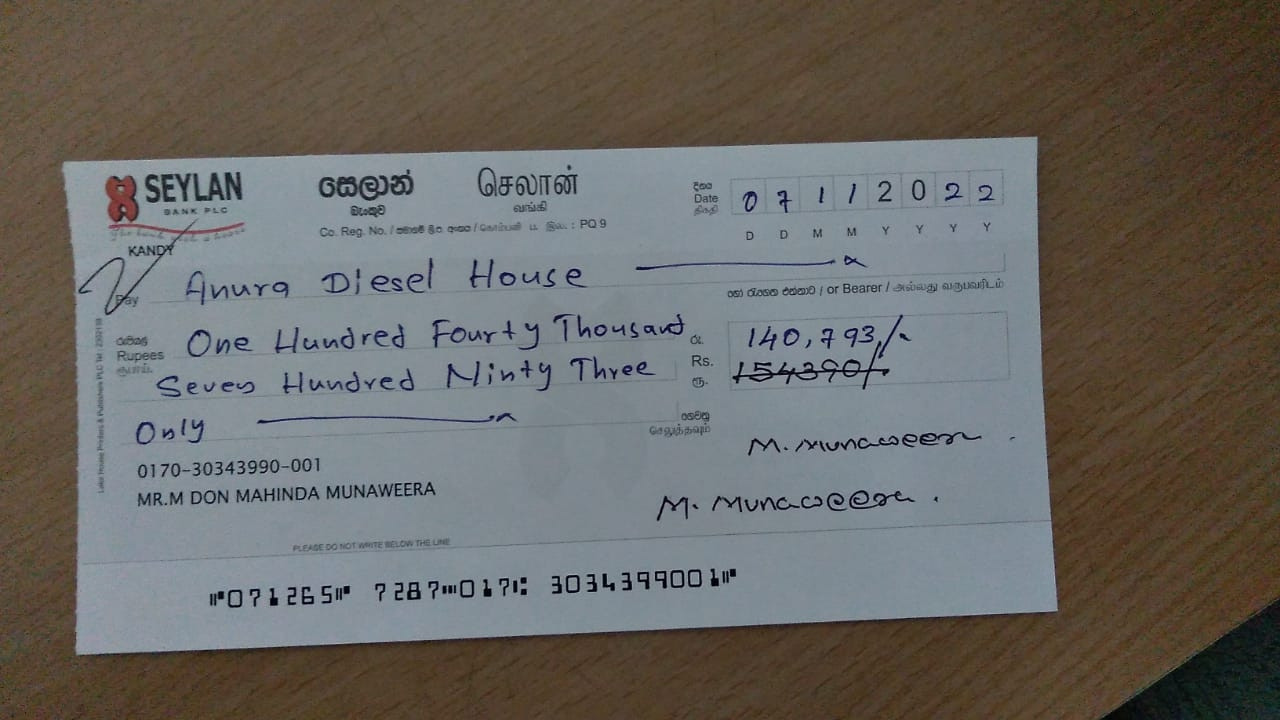 SEYLAN
BANK PLC
සෙලාන්
බැංකුව
செலான்
வங்கி
KANDY
Co. Reg. No. / PQ 9
දිනය
Date
திகதி
07 11 2022
D D M M Y Y Y Y
Pay Anura Diesel House
හෝ රැගෙන එන්නාට / or Bearer / அல்லது வருபவரிடம்
රුපියල්
Rupees
ரூபாய்
One Hundred Fourty Thousand
Seven Hundred Ninty Three
Only
රු.
Rs.
ரூ.
140,793/-
154390/-
ගෙවනු
செலுத்தவும்
0170-30343990-001
MR.M DON MAHINDA MUNAWEERA
M. Munaweera
M. Munaweera.
PLEASE DO NOT WRITE BELOW THE LINE
⑈071265⑈ 7287⑉017⑆ 3034399001⑈